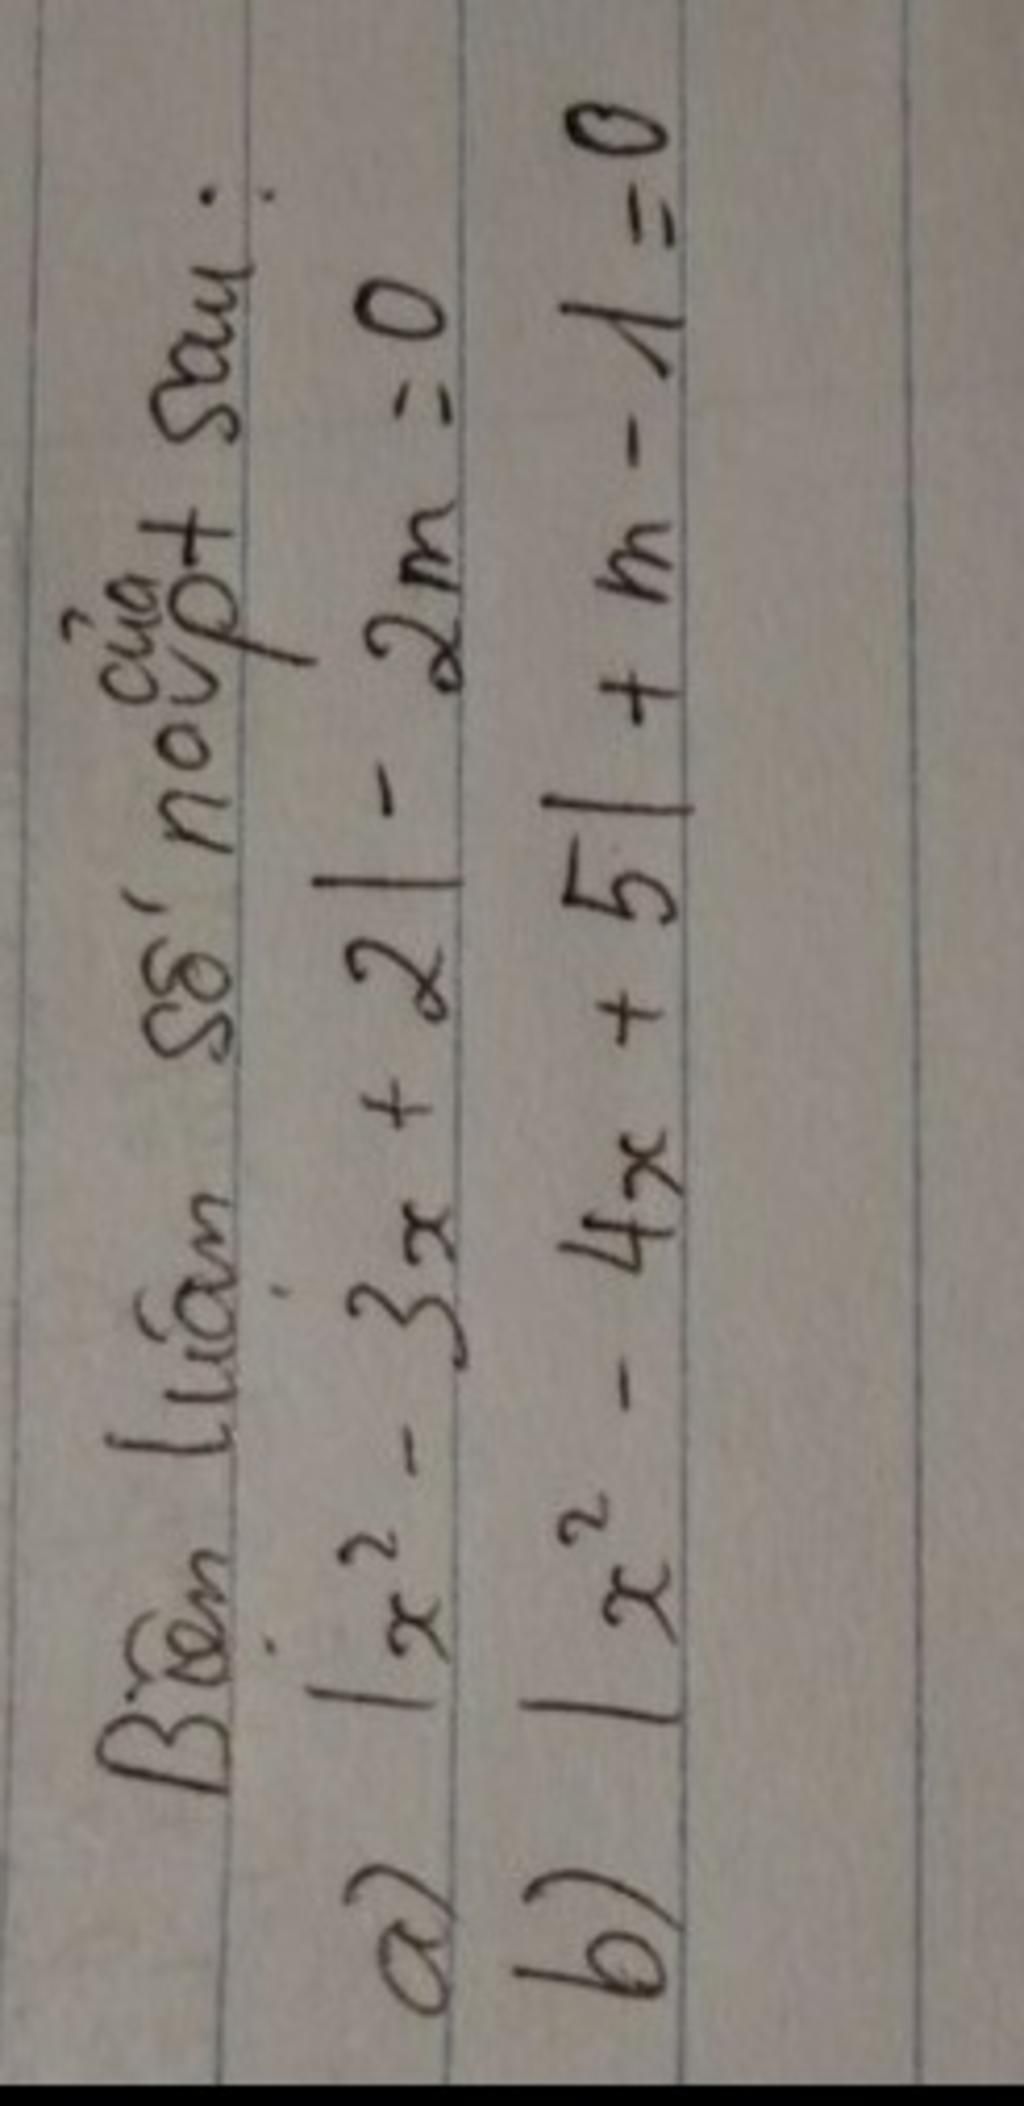 Biện luận số no của pt sau:
a) |x² - 3x + 2| - 2m = 0
b) |x² - 4x + 5| + m - 1 = 0